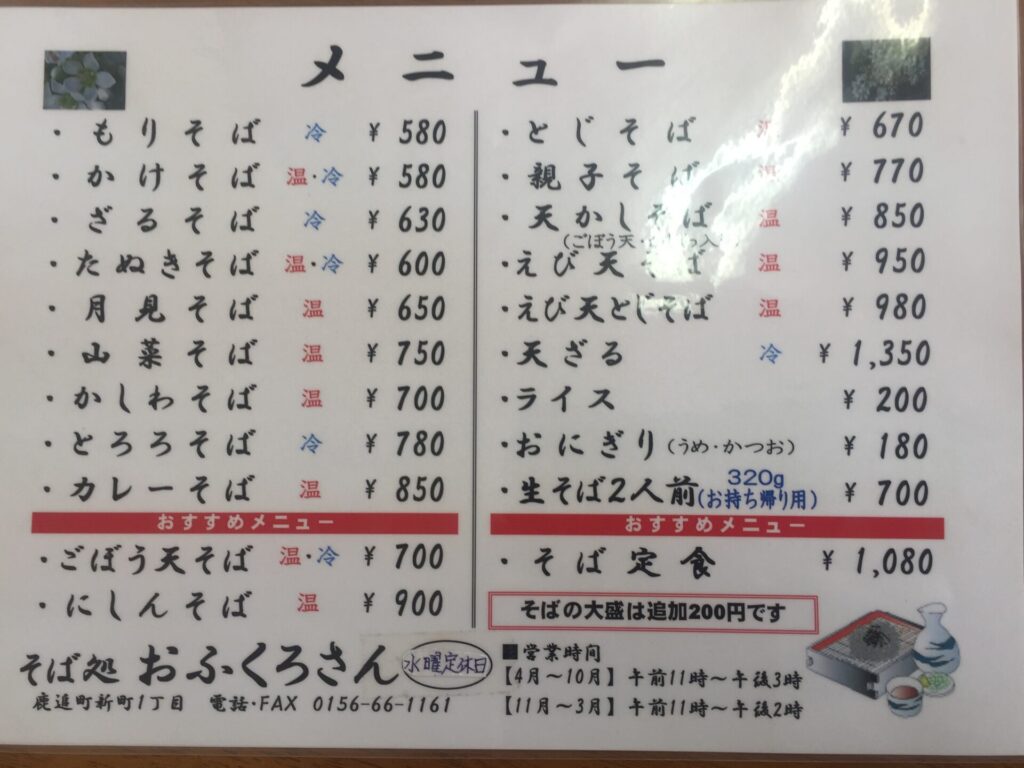 メニュー
・もりそば 冷 ¥ 580
・かけそば 温・冷 ¥ 580
・ざるそば 冷 ¥ 630
・たぬきそば 温・冷 ¥ 600
・月見そば 温 ¥ 650
・山菜そば 温 ¥ 750
・かしわそば 温 ¥ 700
・とろろそば 冷 ¥ 780
・カレーそば 温 ¥ 850
おすすめメニュー
・ごぼう天そば 温・冷 ¥ 700
・にしんそば 温 ¥ 900
・とじそば 温 ¥ 670
・親子そば 温 ¥ 770
・天かしそば 温 ¥ 850
(ごぼう天・
・えび天そば 温 ¥ 950
・えび天とじそば 温 ¥ 980
・天ざる 冷 ¥ 1,350
・ライス ¥ 200
・おにぎり(うめ・かつお) ¥ 180
・生そば2人前 320g (お持ち帰り用) ¥ 700
おすすめメニュー
・そば定食 ¥ 1,080
そばの大盛は追加200円です
そば処 おふくろさん 水曜定休日
鹿追町新町1丁目 電話・FAX 0156-66-1161
■営業時間
【4月~10月】午前11時~午後3時
【11月~3月】午前11時~午後2時